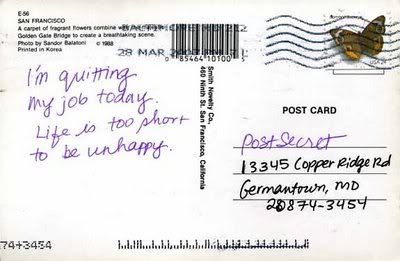 E-56
SAN FRANCISCO
A carpet of fragrant flowers combine
Golden Gate Bridge to create a breathtaking scene.
Photo by Sandor Balatoni © 1988
Printed in Korea
28 MAR 20
0 85464 10100 5
Smith Novelty Co.,
460 Ninth St. San Francisco, California
USA
I'm quitting
my job today.
Life is too short
to be unhappy.
POST CARD
PostSecret
13345 Copper Ridge Rd
Germantown, MD
20874-3454
74+3454